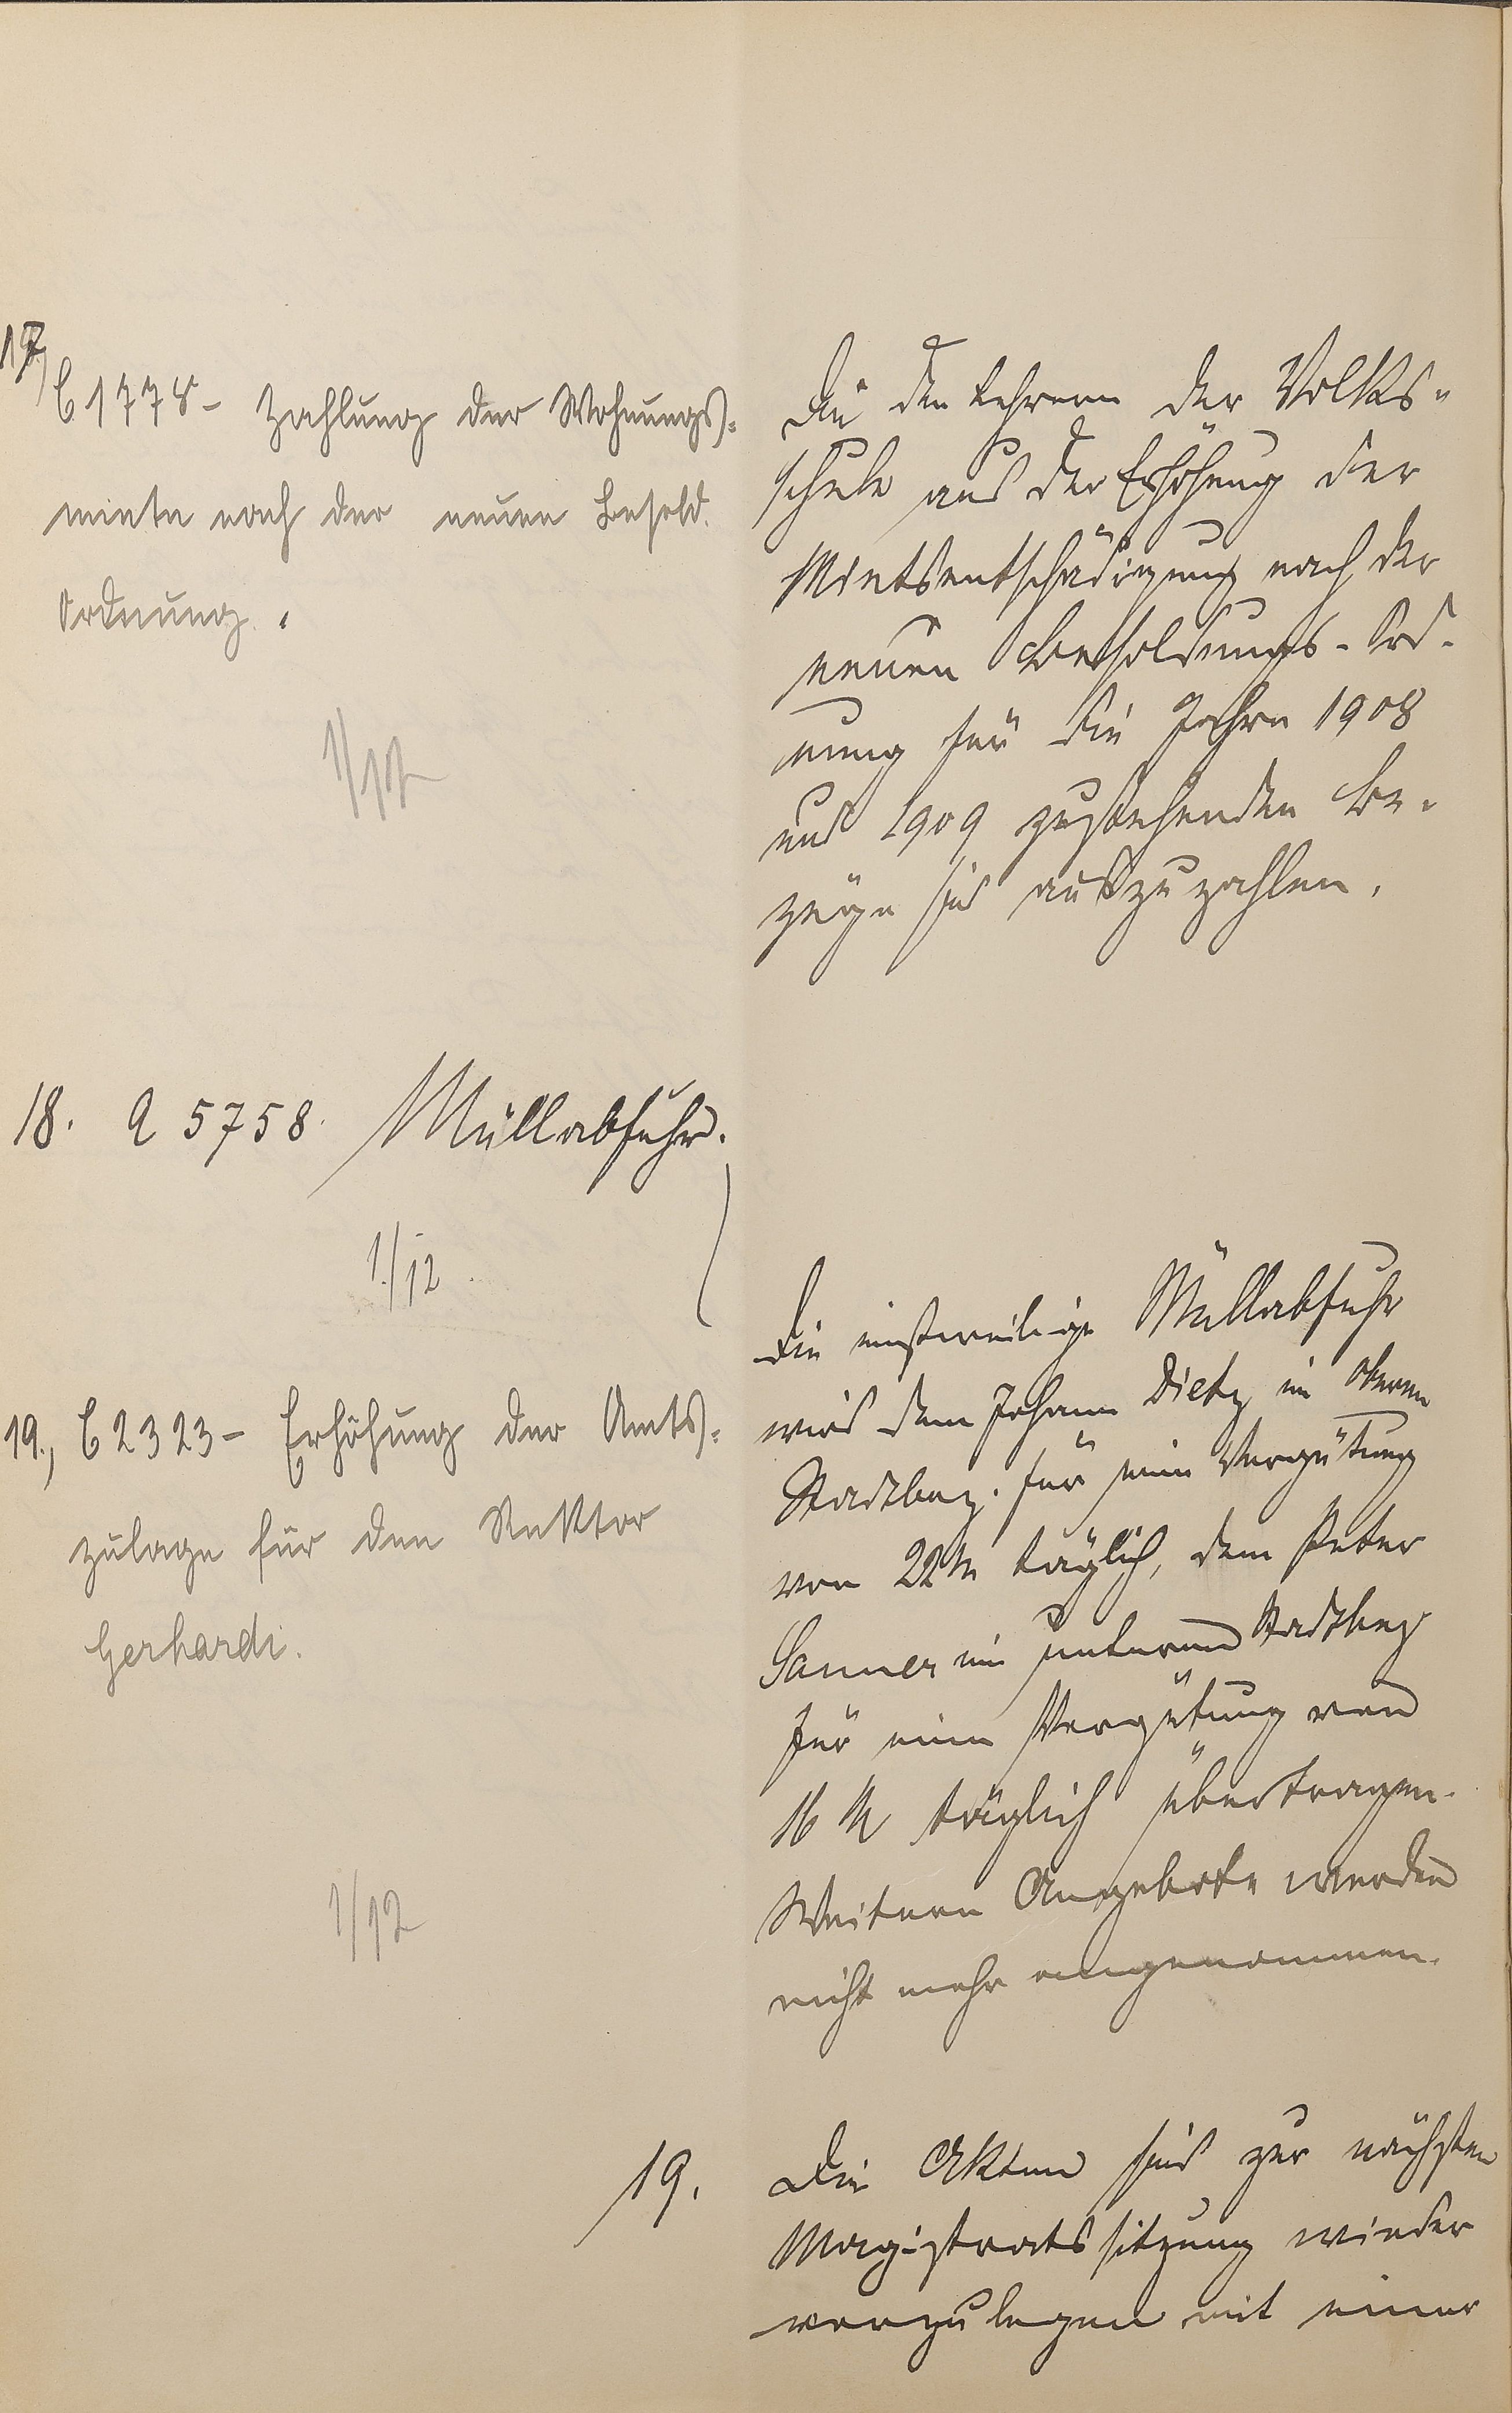 17,
C 1778 - Zahlung der Wohnungs=
miete nach der neuen Besold.
Ordnung.
1/12
Die den Lehrern der Volks=
schule aus der Erhöhung der
Mietsentschädigung nach der
neuen Besoldungs-Ord-
nung für die Jahre 1908
und 1909 zustehenden Be-
züge sind auszuzahlen.
18. A 5758. Müllabfuhr.
1./12
Die einstweilige Müllabfuhr
wird dem Johann Dietz im oberen
Stadtbez. für eine Vergütung
von 22 M täglich, dem Peter
Sanner im unteren Stadtbez.
für eine Vergütung von
16 M täglich übertragen.
Weitere Angebote werden
nicht mehr angenommen.
19., C 2323 - Erhöhung der Amts=
zulage für den Rektor
Gerhardi.
1/12
19. Die Akten sind zur nächsten
Magistratssitzung wieder
vorzulegen mit einer